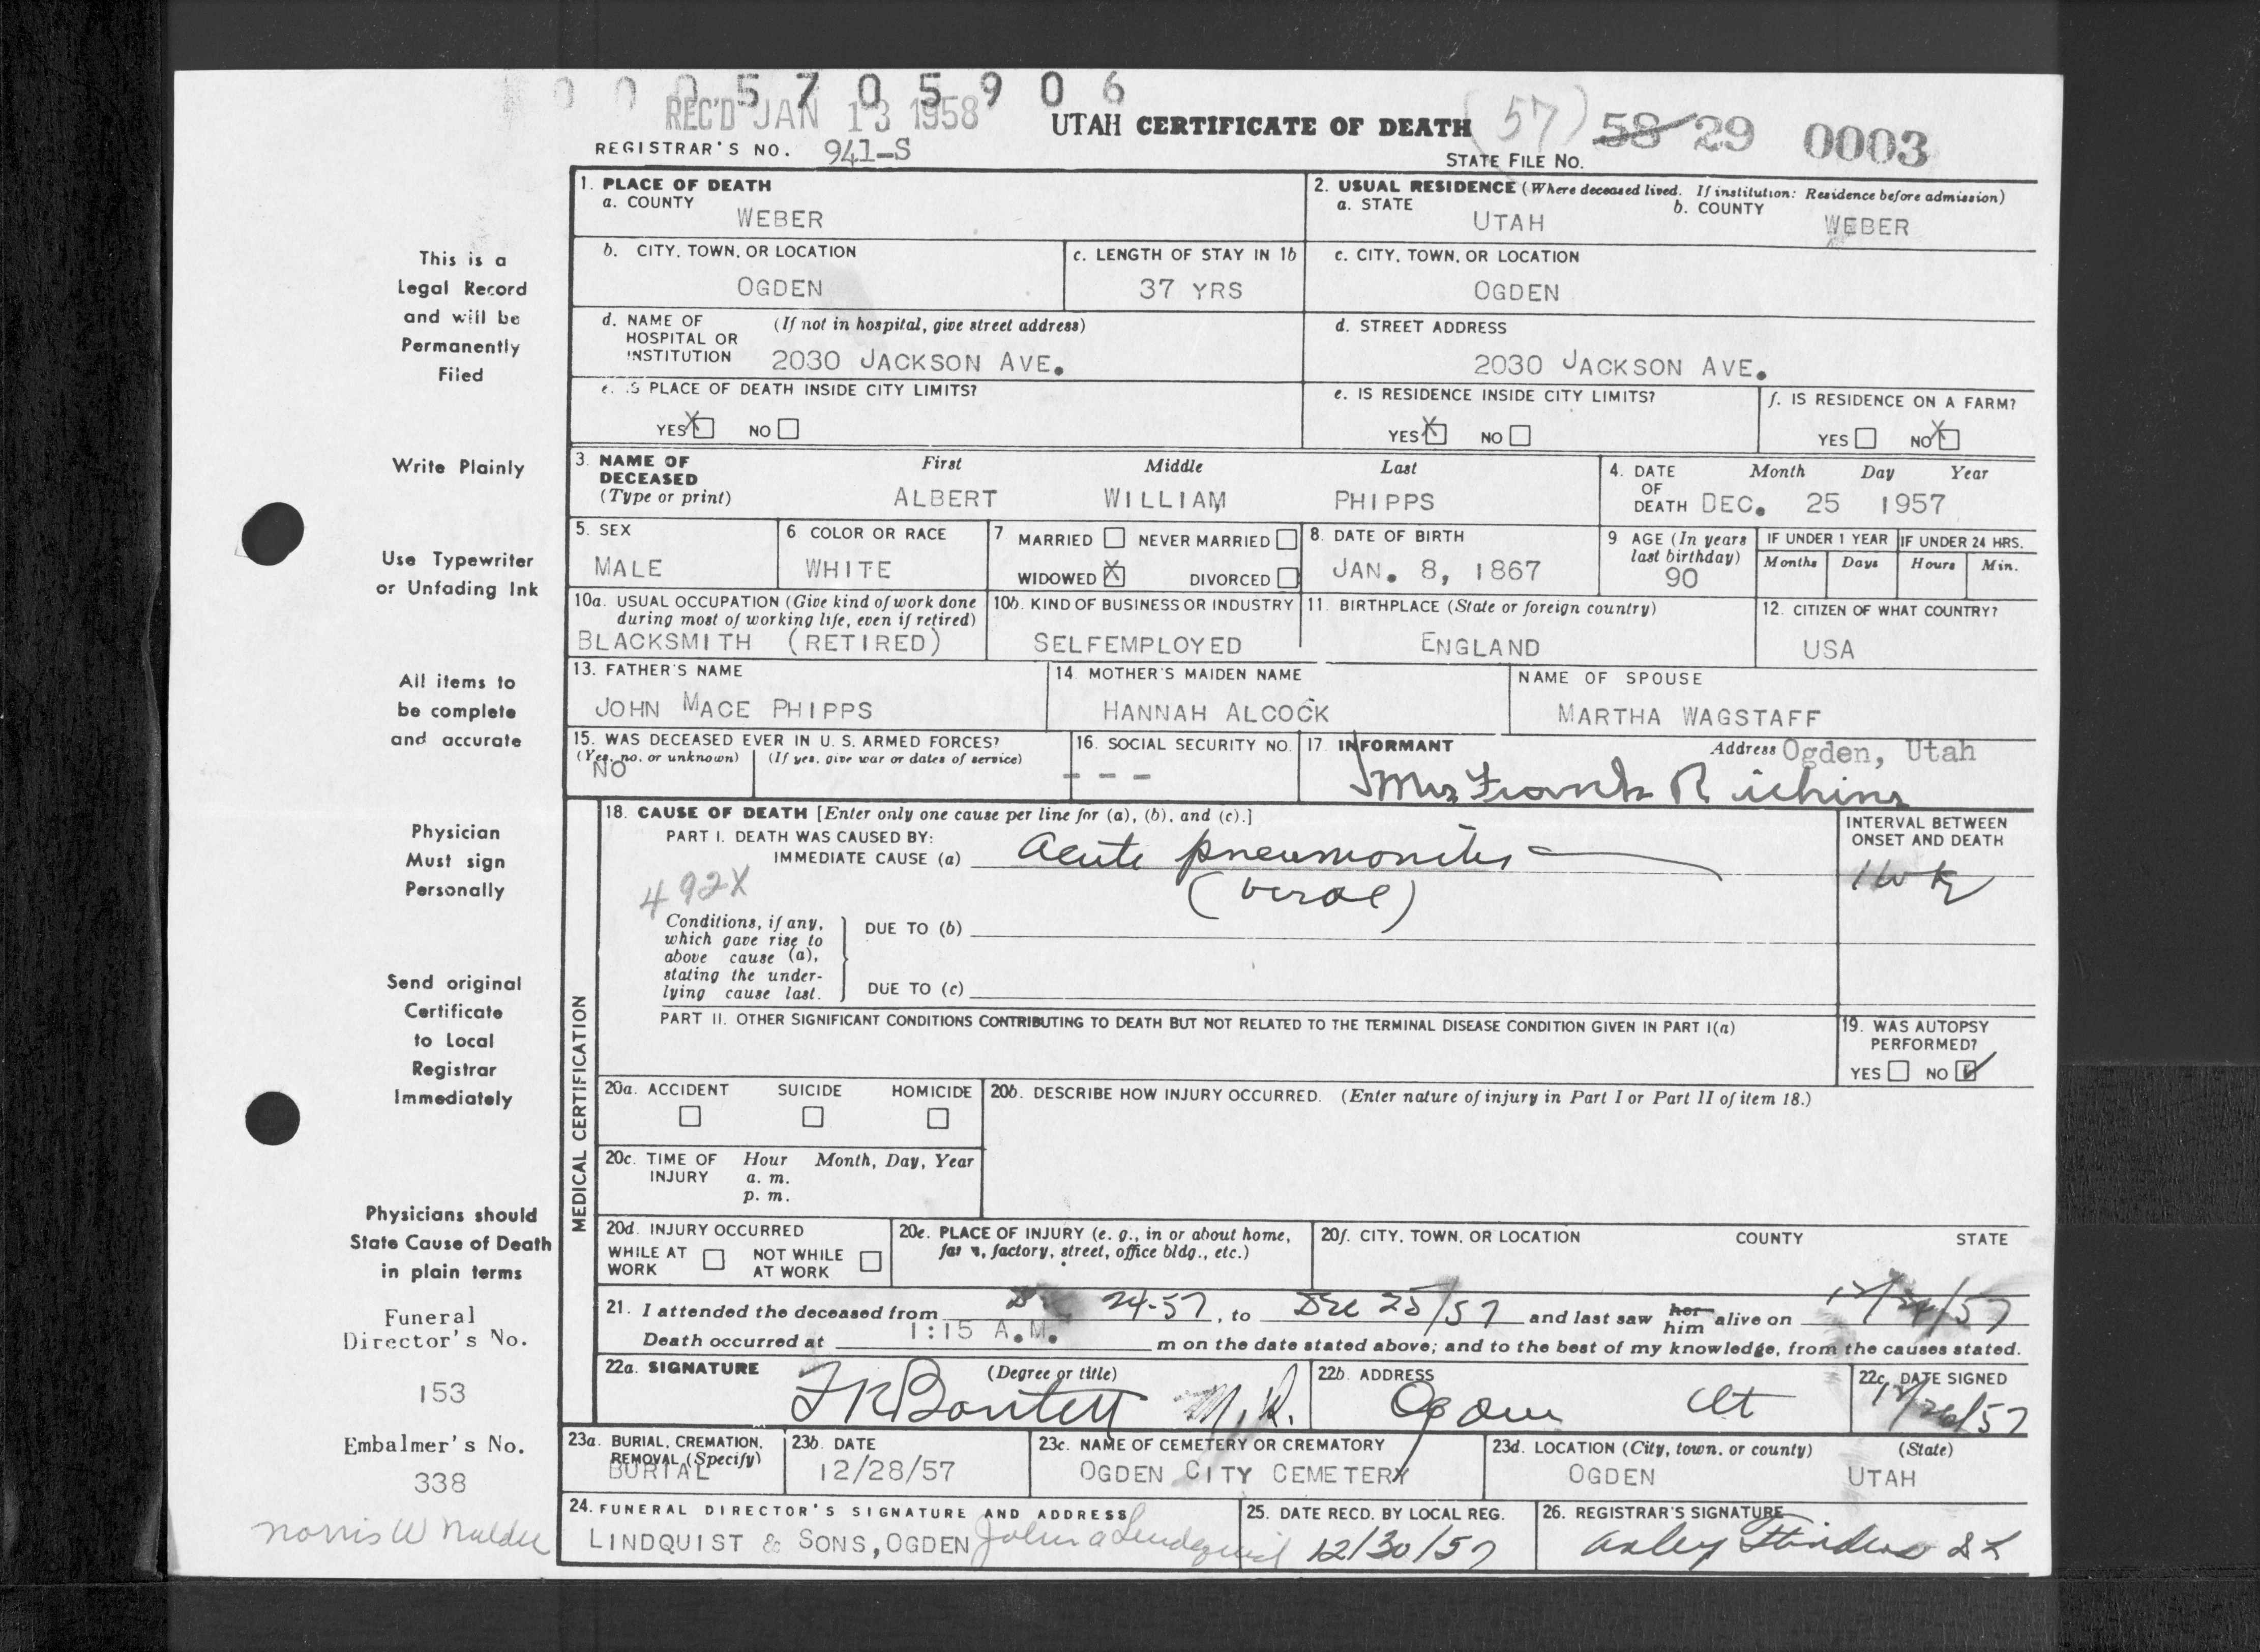 0 0 0 5 7 0 5 9 0 6
REC'D JAN 13 1958
UTAH CERTIFICATE OF DEATH (57) 58 29 0003
REGISTRAR'S NO. 941-S
STATE FILE NO.
1. PLACE OF DEATH
a. COUNTY
WEBER
2. USUAL RESIDENCE (Where deceased lived. If institution: Residence before admission)
a. STATE UTAH b. COUNTY WEBER
b. CITY, TOWN, OR LOCATION
OGDEN
c. LENGTH OF STAY IN 1b
37 YRS
c. CITY, TOWN, OR LOCATION
OGDEN
d. NAME OF HOSPITAL OR INSTITUTION (If not in hospital, give street address)
2030 JACKSON AVE.
d. STREET ADDRESS
2030 JACKSON AVE.
e. IS PLACE OF DEATH INSIDE CITY LIMITS?
YES X NO
e. IS RESIDENCE INSIDE CITY LIMITS?
YES X NO
f. IS RESIDENCE ON A FARM?
YES NO X
3. NAME OF DECEASED (Type or print)
First Middle Last
ALBERT WILLIAM PHIPPS
4. DATE OF DEATH Month Day Year
DEC. 25 1957
5. SEX
MALE
6 COLOR OR RACE
WHITE
7 MARRIED NEVER MARRIED
WIDOWED X DIVORCED
8. DATE OF BIRTH
JAN. 8, 1867
9 AGE (In years last birthday)
90
IF UNDER 1 YEAR
Months Days
IF UNDER 24 HRS.
Hours Min.
10a. USUAL OCCUPATION (Give kind of work done during most of working life, even if retired)
BLACKSMITH (RETIRED)
10b. KIND OF BUSINESS OR INDUSTRY
SELFEMPLOYED
11. BIRTHPLACE (State or foreign country)
ENGLAND
12. CITIZEN OF WHAT COUNTRY?
USA
13. FATHER'S NAME
JOHN MACE PHIPPS
14. MOTHER'S MAIDEN NAME
HANNAH ALCOCK
NAME OF SPOUSE
MARTHA WAGSTAFF
15. WAS DECEASED EVER IN U. S. ARMED FORCES?
(Yes, no, or unknown) (If yes, give war or dates of service)
NO
16. SOCIAL SECURITY NO.
- - -
17. INFORMANT
Mrs Frank Richins
Address Ogden, Utah
18. CAUSE OF DEATH [Enter only one cause per line for (a), (b), and (c).]
PART I. DEATH WAS CAUSED BY:
IMMEDIATE CAUSE (a) Acute pneumonitis
(viral)
INTERVAL BETWEEN ONSET AND DEATH
1 wk
492X
Conditions, if any, which gave rise to above cause (a), stating the underlying cause last.
DUE TO (b)
DUE TO (c)
PART II. OTHER SIGNIFICANT CONDITIONS CONTRIBUTING TO DEATH BUT NOT RELATED TO THE TERMINAL DISEASE CONDITION GIVEN IN PART I(a)
19. WAS AUTOPSY PERFORMED?
YES NO ✓
MEDICAL CERTIFICATION
20a. ACCIDENT SUICIDE HOMICIDE
20b. DESCRIBE HOW INJURY OCCURRED. (Enter nature of injury in Part I or Part II of item 18.)
20c. TIME OF INJURY Hour Month, Day, Year
a. m.
p. m.
20d. INJURY OCCURRED
WHILE AT WORK NOT WHILE AT WORK
20e. PLACE OF INJURY (e. g., in or about home, farm, factory, street, office bldg., etc.)
20f. CITY, TOWN, OR LOCATION COUNTY STATE
21. I attended the deceased from Dec 24-57, to Dec 25/57 and last saw her him alive on 12/24/57
Death occurred at 1:15 A.M. m on the date stated above; and to the best of my knowledge, from the causes stated.
22a. SIGNATURE (Degree or title)
M.D.
22b. ADDRESS
Ogden Ut
22c. DATE SIGNED
12/26/57
23a. BURIAL, CREMATION, REMOVAL (Specify)
BURIAL
23b. DATE
12/28/57
23c. NAME OF CEMETERY OR CREMATORY
OGDEN CITY CEMETERY
23d. LOCATION (City, town, or county) (State)
OGDEN UTAH
24. FUNERAL DIRECTOR'S SIGNATURE AND ADDRESS
LINDQUIST & SONS, OGDEN John A Lindquist
25. DATE RECD. BY LOCAL REG.
12/30/57
26. REGISTRAR'S SIGNATURE
This is a
Legal Record
and will be
Permanently
Filed
Write Plainly
Use Typewriter
or Unfading Ink
All items to
be complete
and accurate
Physician
Must sign
Personally
Send original
Certificate
to Local
Registrar
Immediately
Physicians should
State Cause of Death
in plain terms
Funeral
Director's No.
153
Embalmer's No.
338
Norris W